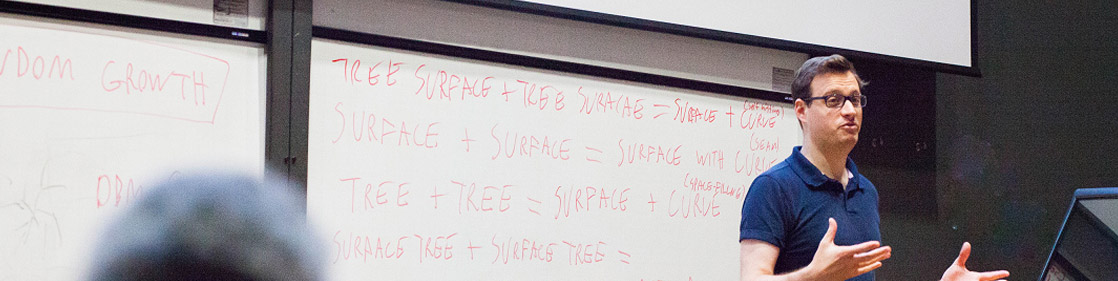 NDOM GROWTH
DBM
TREE SURFACE + TREE SURACAE = SURFACE + CURVE
SURFACE + SURFACE = SURFACE WITH CURVE
(SEAM)
TREE + TREE = SURFACE + CURVE
(SPACE-FILLING)
SURFACE TREE + SURFACE TREE =